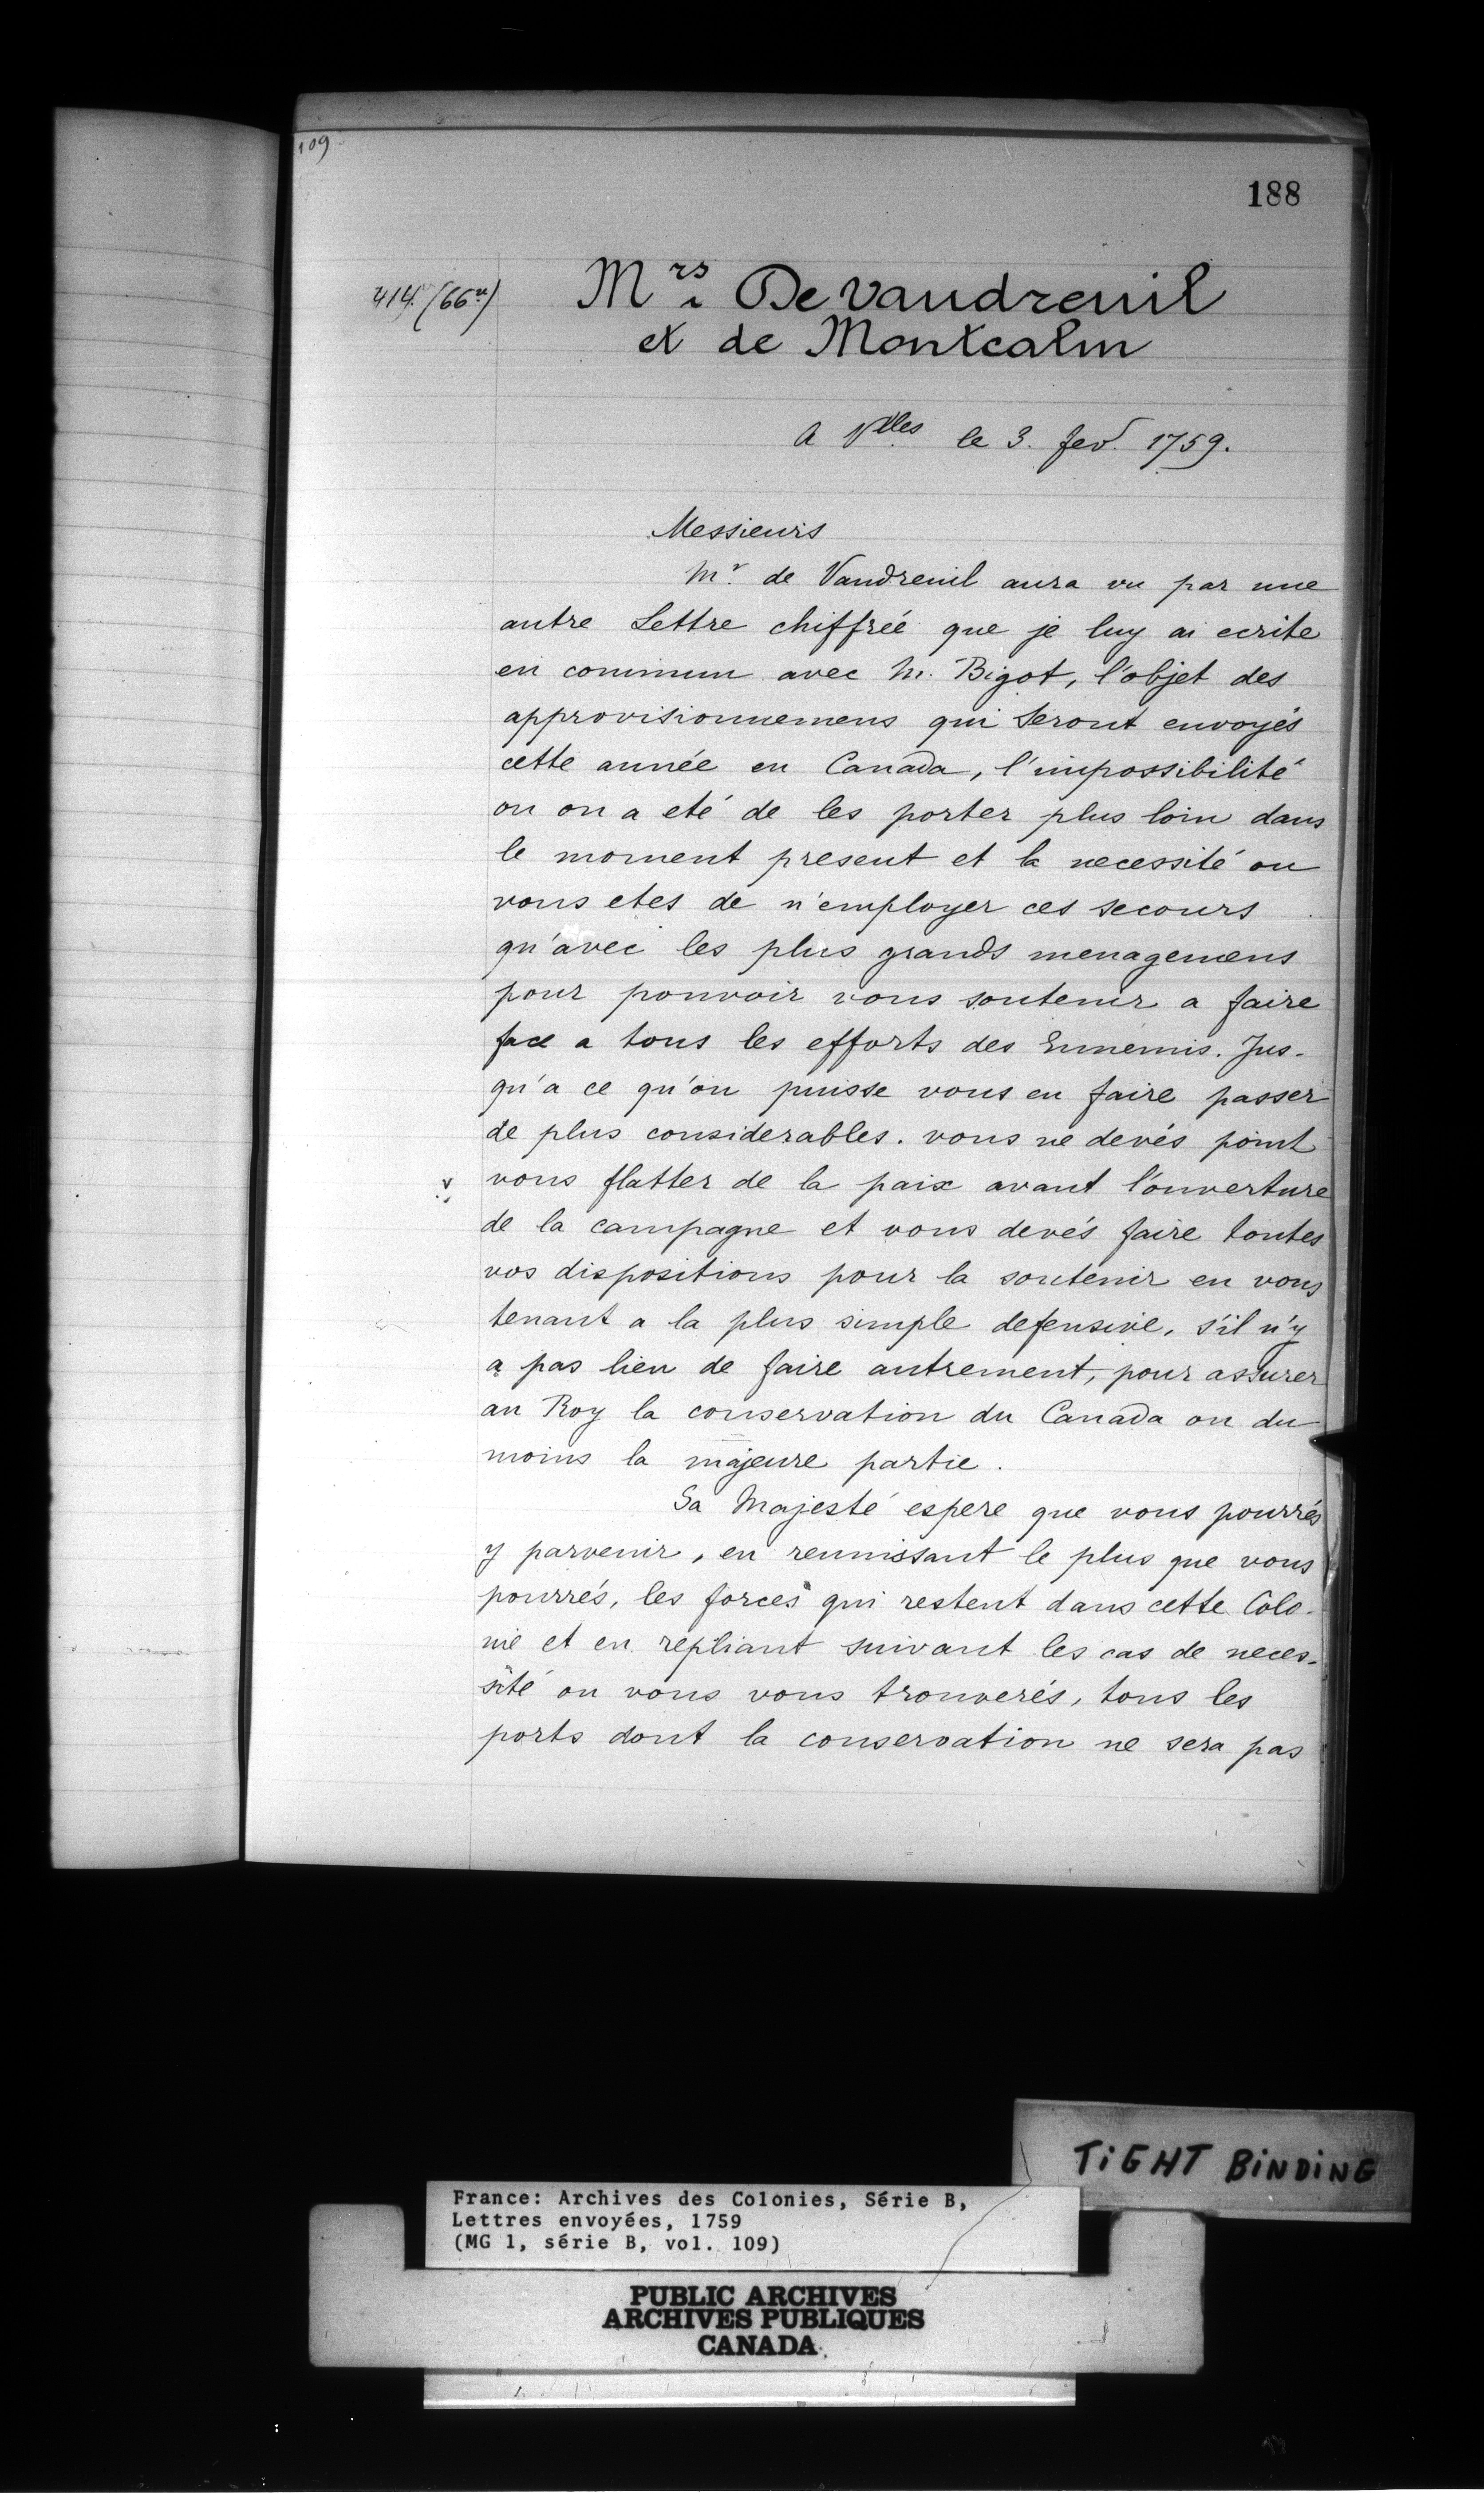 109
188
414. (66)
Mrs De Vaudreuil
et de Montcalm
A Vlles le 3. fev. 1759.
Messieurs
Mr. de Vaudreuil aura vu par une
autre Lettre chiffreé que je luy ai ecrite
en commun avec M. Bigot, l'objet des
approvisionnemens qui seront envoyés
cette année en Canada, l'impossibilité
ou on a eté de les porter plus loin dans
le moment present et la necessité ou
vous etes de n'employer ces secours
qu'avec les plus grands menagemens
pour pouvoir vous soutenir a faire
face a tous les efforts des Ennemis. Jus-
qu'a ce qu'on puisse vous en faire passer
de plus considerables. vous ne devés point
vous flatter de la paix avant l'ouverture
de la campagne et vous devés faire toutes
vos dispositions pour la soutenir en vous
tenant a la plus simple defensive, s'il n'y
a pas lieu de faire autrement, pour assurer
au Roy la conservation du Canada ou du
moins la majeure partie.
Sa Majesté espere que vous pourrés
y parvenir, en reunissant le plus que vous
pourrés, les forces qui restent dans cette Colo-
nie et en repliant suivant les cas de neces-
sité ou vous vous trouverés, tous les
ports dont la conservation ne sera pas
TIGHT BINDING
France: Archives des Colonies, Série B,
Lettres envoyées, 1759
(MG 1, série B, vol. 109)
PUBLIC ARCHIVES
ARCHIVES PUBLIQUES
CANADA